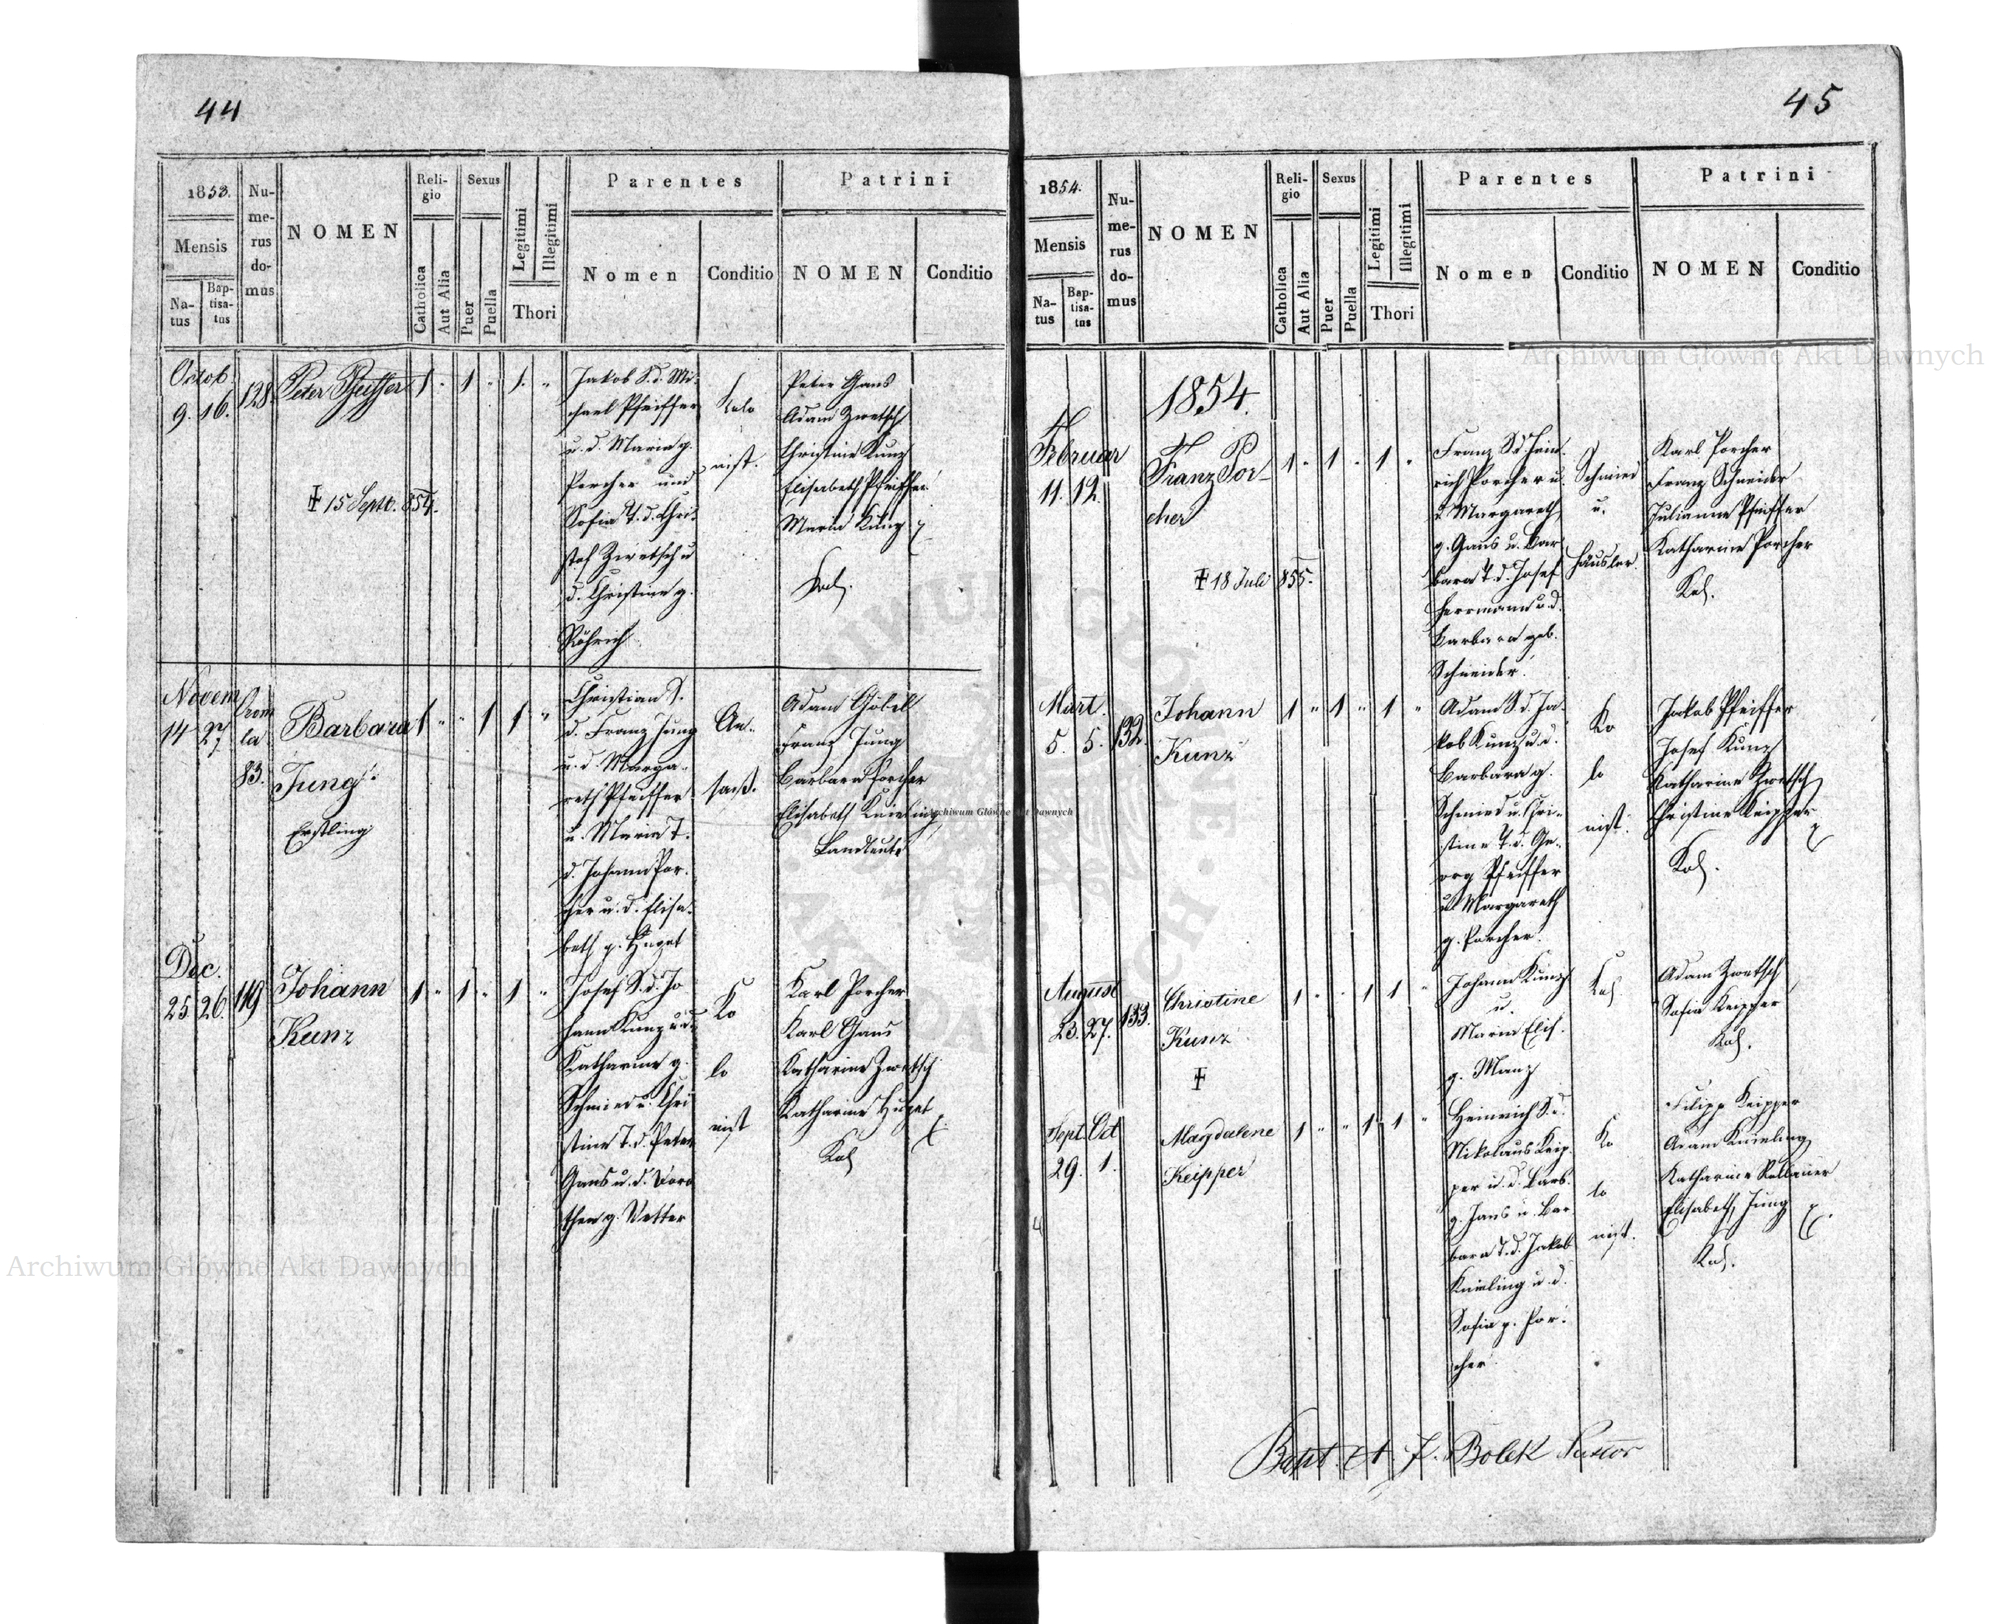 44
1853.
Mensis
Na-
tus
Bap-
tisa-
tus
Nu-
me-
rus
do-
mus
NOMEN
Reli-
gio
Catholica
Aut Alia
Sexus
Puer
Puella
Legitimi
Illegitimi
Thori
Parentes
Nomen
Conditio
Patrini
NOMEN
Conditio
Octob.
9. 16. 128
Peter Pfeiffer
1 " 1 " 1. "
‡ 15 Sept. 854.
Jakob S. d. Mi-
chael Pfeiffer
u. d. Maria g.
Porcher und
Sofia T. d. Chri-
stof Zwetsch u
d. Christine g.
Röhrich
Kolo
nist.
Peter Gans
Adam Zwetsch
Christine Kunz
Elisabeth Pfeiffer
Maria Kunz
Kol.
Novem
14 27
83.
Barbara
Jung
Erstling
1 " " 1 1 "
Christian S.
d. Franz Jung
u. d. Marga-
reth Pfeiffer
u. Maria T.
d. Johann Por-
cher u. d. Elisa-
beth g. Huzat
An-
saß.
Adam Göbell
Franz Jung
Barbara Porcher
Elisabeth Knieling
Landleute
Dec.
25 26. 119
Johann
Kunz
1 " 1 " 1 "
Josef S. d. Jo
hann Kunz u. d.
Katharina g.
Schmied u. Chri
stine T. d. Peter
Gans u. d. Doro
thea g. Vetter
Ko
lo
nist
Karl Porcher
Karl Gans
Katharine Zwetsch
Katharine Huzat
Kol
45
1854.
Mensis
Na-
tus
Bap-
tisa-
tus
Nu-
me-
rus
do-
mus
NOMEN
Reli-
gio
Catholica
Aut Alia
Sexus
Puer
Puella
Legitimi
Illegitimi
Thori
Parentes
Nomen
Conditio
Patrini
NOMEN
Conditio
1854.
Februar
11. 12.
Franz Por-
cher
1 " 1 " 1 "
‡ 18 Juli 855.
Franz S d Hein-
rich Porcher u.
d Margareth
g. Gans u. Bar
bara T. d. Josef
Herrmann u. d.
Barbara geb.
Schneider.
Schmied
u.
Häusler.
Karl Porcher
Franz Schneider
Julianne Pfeiffer
Katharine Porcher
Kol.
Mart.
5. 5. 132.
Johann
Kunz
1 " 1 " 1 "
Adam S d. Ja-
kob Kunz u. d.
Barbara g.
Schmied u. Chri-
stine T. d. Ge-
org Pfeiffer
u. Margareth
g. Porcher.
Ko
lo
nist.
Jakob Pfeiffer
Josef Kunz
Katharine Zwetsch
Christine Keipper
Kol.
August
23. 27. 133.
Christine
Kunz
‡
1 " " 1 1 "
Johann Kunz
u.
Maria Elis.
g. Manz
Kol
Adam Zwetsch
Sofia Keipper
Kol.
Sept. Oct
29. 1.
Magdalene
Keipper
1 " " 1 1 "
Heinrich S. d.
Nikolaus Keip-
per u. d. Barb.
g. Jans u. Bar
bara T. d. Jakob
Knieling u. d.
Sofia g. Por-
cher
Ko
lo
nist.
Filipp Keipper
Adam Knieling
Elisabeth Jung
Kol.
Bapt. A. J. Bolek Pastor
Archiwum Główne Akt Dawnych
Archiwum Główne Akt Dawnych
Archiwum Główne Akt Dawnych